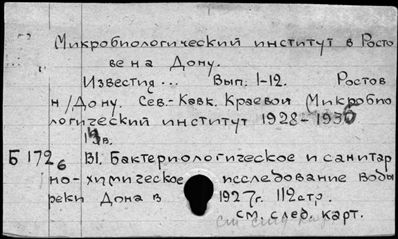 Микробиологический институт в Росто
ве на Дону.
Известия... Вып. 1-12. Ростов
н/Дону. Сев.-Кавк. Краевой Микробио
логический институт 1928-1936
в.
Б 1726 В1. Бактериологическое и санитар
но-химическое исследование воды
реки Дона в 1927г. 112стр.
см. след. карт.